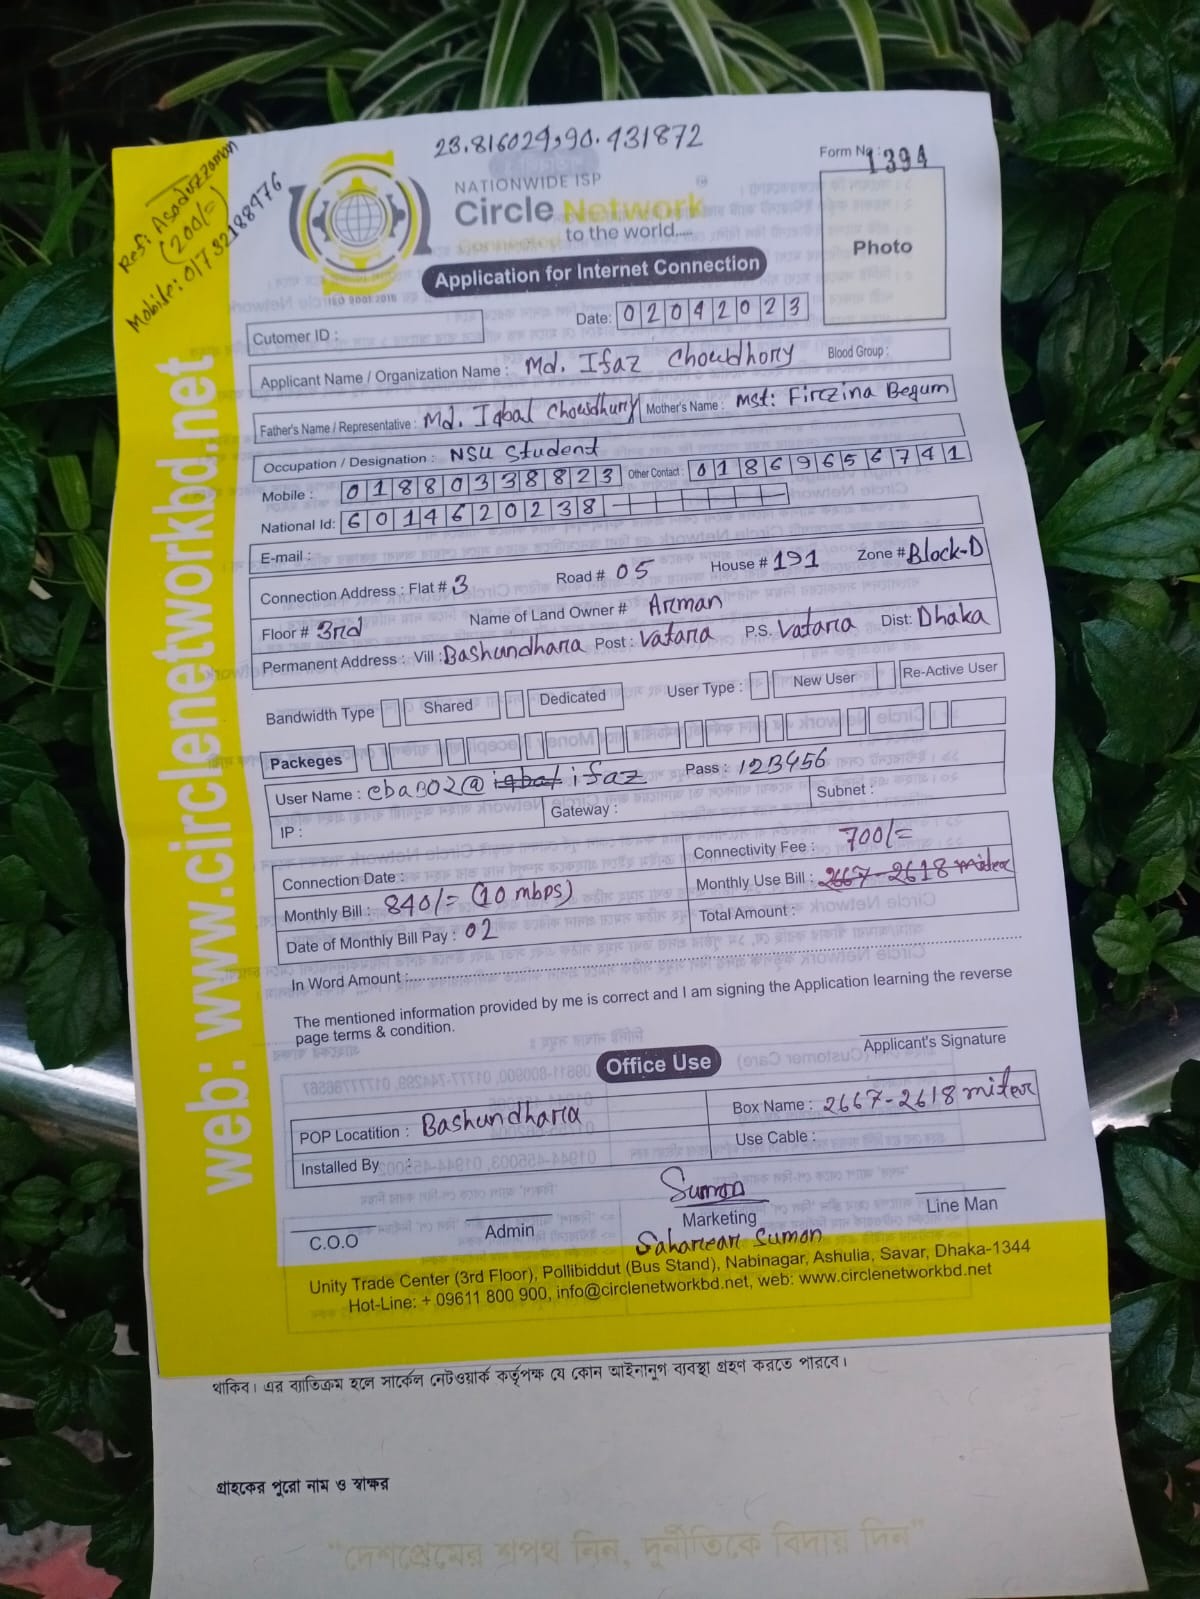 23.816029,90.431872
Ref: Asaduzzaman
(200/=)
Mobile: 01732188976
Form No : 1394
NATIONWIDE ISP
Circle Network
to the world.....
ISO 9001:2015
Photo
Application for Internet Connection
Date: 02042023
Cutomer ID :
Applicant Name / Organization Name : Md. Ifaz Chowdhory Blood Group :
Father's Name / Representative : Md. Iqbal Chowdhury Mother's Name : Mst: Firzina Begum
Occupation / Designation : NSU Student
Mobile : 01880338823 Other Contact : 01869656741
National Id: 6014620238
E-mail :
Connection Address : Flat # 3 Road # 05 House # 191 Zone # Block-D
Floor # 3rd Name of Land Owner # Arman
Permanent Address : Vill : Bashundhara Post : Vatara P.S. Vatara Dist: Dhaka
Bandwidth Type Shared Dedicated User Type : New User Re-Active User
Packeges
User Name : cbab02@ iqbal ifaz Pass : 123456
IP : Gateway : Subnet :
Connection Date : Connectivity Fee : 700/=
Monthly Bill : 840/= (10 mbps) Monthly Use Bill : 2667-2618 miter
Date of Monthly Bill Pay : 02 Total Amount :
In Word Amount :
The mentioned information provided by me is correct and I am signing the Application learning the reverse
page terms & condition.
Applicant's Signature
Office Use
POP Locatition : Bashundhara Box Name : 2667-2618 miter
Installed By : Use Cable :
Sumon
C.O.O Admin Marketing Line Man
Sahariar Sumon
Unity Trade Center (3rd Floor), Pollibiddut (Bus Stand), Nabinagar, Ashulia, Savar, Dhaka-1344
Hot-Line: + 09611 800 900, info@circlenetworkbd.net, web: www.circlenetworkbd.net
web: www.circlenetworkbd.net
থাকিব। এর ব্যতিক্রম হলে সার্কেল নেটওয়ার্ক কর্তৃপক্ষ যে কোন আইনানুগ ব্যবস্থা গ্রহণ করতে পারবে।
গ্রাহকের পুরো নাম ও স্বাক্ষর
“দেশপ্রেমের শপথ নিন, দুর্নীতিকে বিদায় দিন”